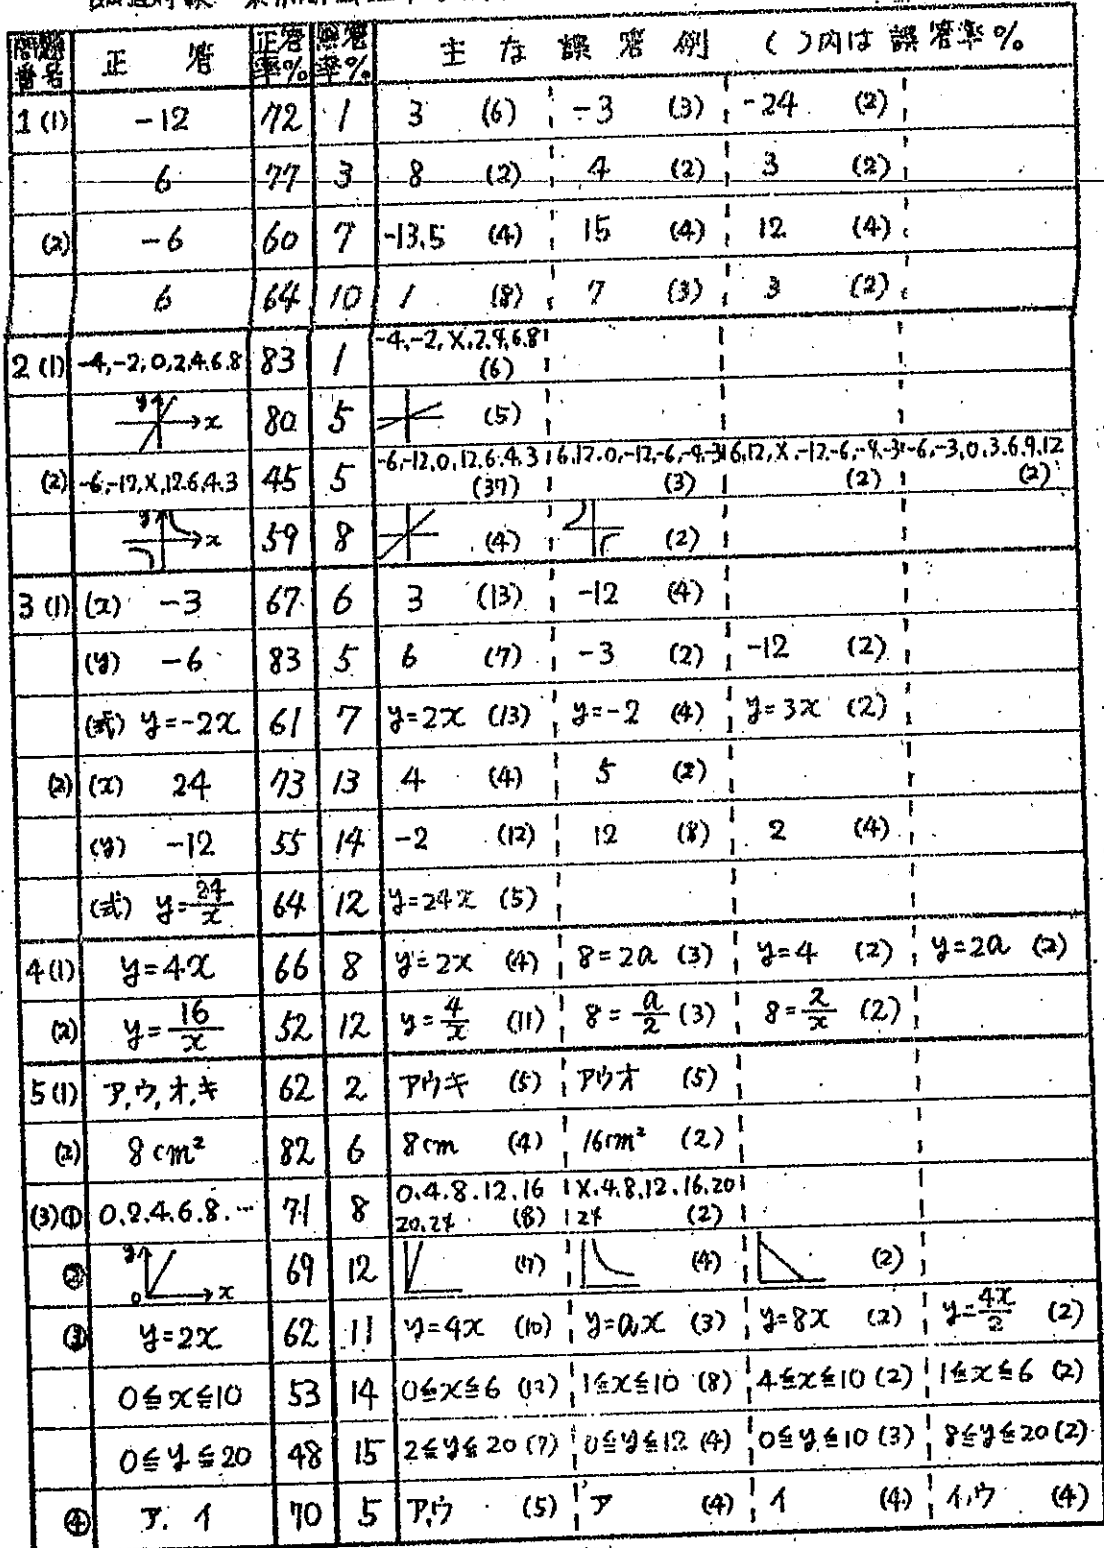 問題番号 正答 正答率% 無答率% 主な誤答例 ( )内は誤答率%
1 (1) -12 72 1 3 (6) -3 (3) -24 (2)
6 77 3 8 (2) 4 (2) 3 (2)
(2) -6 60 7 -13.5 (4) 15 (4) 12 (4)
6 64 10 1 (8) 7 (3) 3 (2)
2 (1) -4,-2,0,2,4,6,8 83 1 -4,-2,X,2,4,6,8 (6)
y x 80 5 (5)
(2) -6,-12,X,12,6,4,3 45 5 -6,-12,0,12,6,4,3 (37) 6,12,0,-12,-6,-4,-3 (3) 6,12,X,-12,-6,-4,-3 (2) -6,-3,0,3,6,9,12 (2)
y x 59 8 (4) (2)
3 (1) (x) -3 67 6 3 (13) -12 (4)
(y) -6 83 5 6 (7) -3 (2) -12 (2)
(式) y=-2x 61 7 y=2x (13) y=-2 (4) y=3x (2)
(2) (x) 24 73 13 4 (4) 5 (2)
(y) -12 55 14 -2 (12) 12 (8) 2 (4)
(式) y=24/x 64 12 y=24x (5)
4 (1) y=4x 66 8 y=2x (4) 8=2a (3) y=4 (2) y=2a (2)
(2) y=16/x 52 12 y=4/x (11) 8=a/2 (3) 8=2/x (2)
5 (1) ア,ウ,オ,キ 62 2 アウキ (5) アウオ (5)
(2) 8cm² 82 6 8cm (4) 16cm² (2)
(3)① 0,2,4,6,8,… 71 8 0,4,8,12,16 20,24 (8) X,4,8,12,16,20 24 (2)
② y 0 x 69 12 (4) (2)
③ y=2x 62 11 y=4x (10) y=ax (3) y=8x (2) y=4x/2 (2)
0≦x≦10 53 14 0≦x≦6 (12) 1≦x≦10 (8) 4≦x≦10 (2) 1≦x≦6 (2)
0≦y≦20 48 15 2≦y≦20 (7) 0≦y≦12 (4) 0≦y≦10 (3) 8≦y≦20 (2)
④ ア.イ 70 5 ア,ウ (5) ア (4) イ (4) イ,ウ (4)